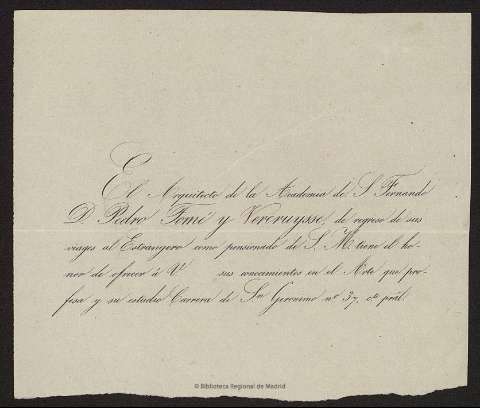 El Arquitecto de la Academia de S. Fernando
D. Pedro Tomé y Vercruysse, de regreso de sus
viages al Estrangero como pensionado de S. M. tiene el ho-
nor de ofrecer á Vd. sus conocimientos en el Arte que pro-
fesa y su estudio Carrera de Sn. Geronimo nº 37, cto. pral.
© Biblioteca Regional de Madrid